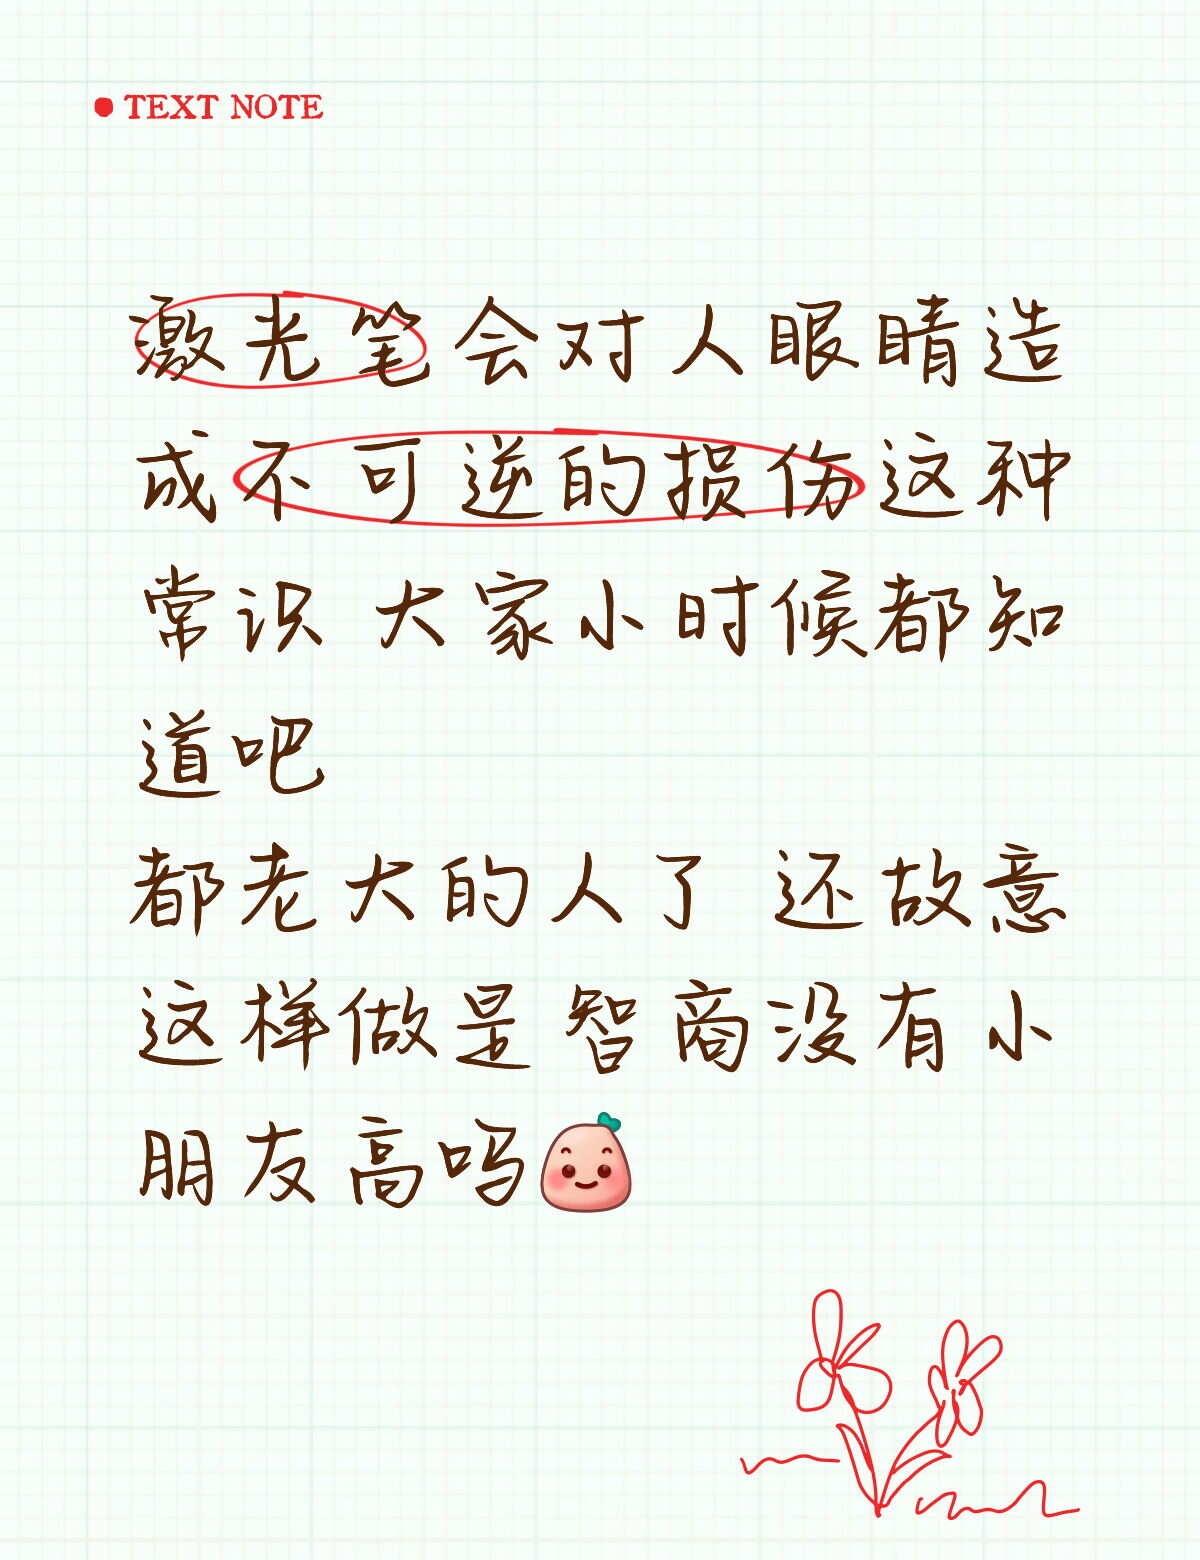 TEXT NOTE
激光笔会对人眼睛造
成不可逆的损伤这种
常识 大家小时候都知
道吧
都老大的人了 还故意
这样做是智商没有小
朋友高吗